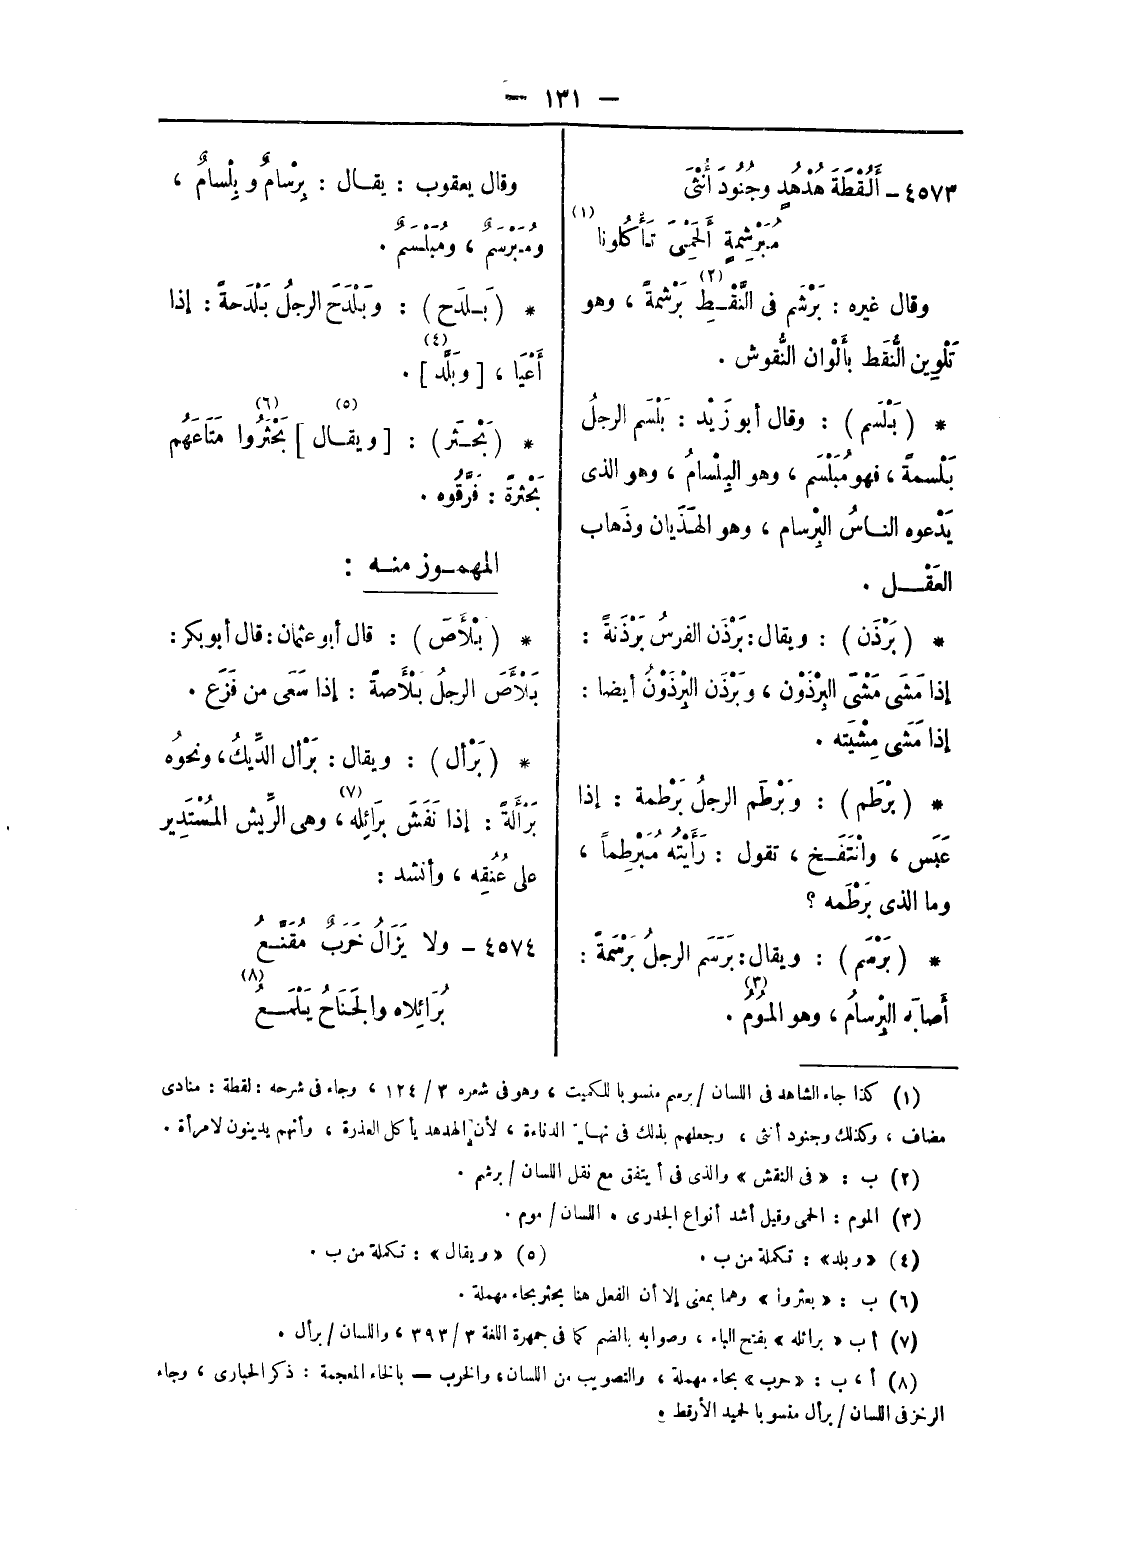 — ١٣١ —
٤٥٧٣ – أَلُقْطَةَ هُدْهُدٍ وجُنُودَ أُنْثَى
مُبَرْشِمةٍ أَلَحْمِى تَأْكُلونا (١)
وقال غيره : بَرْشَم فى النَّقْـطِ (٢) بَرْشمةً ، وهو
تَلْوِين النُّقَط بأَلْوان النُّقوش .
* ( بَلْسَم ) : وقال أبو زَيْد : بَلْسَم الرجلُ
بَلْسمةً ، فهو مُبَلْسَم ، وهو البِلْسامُ ، وهو الذى
يَدْعوه النـاسُ البِرْسام ، وهو الهَذَيان وذَهاب
العَقْـــل .
* ( بَرْذَن ) : ويقال : بَرْذَن الفرسُ بَرْذَنةً :
إذا مَشَى مَشْىَ البِرْذَوْن ، وبَرْذَن البِرْذَوْنُ أيضا :
إذا مَشَى مِشْيَته .
* ( بَرْطَم ) : وبَرْطَم الرجلُ بَرْطمة : إذا
عَبَس ، وانْتَفَـخ ، تقول : رَأَيْتُه مُبَرْطِماً ،
وما الذى بَرْطَمه ؟
* ( بَرْسَم ) : ويقال : بَرْسَم الرجلُ بَرْسَمةً :
أَصابَه البِرْسامُ ، وهو المُومُ (٣) .
وقال يعقوب : يقــال : بِرْسامٌ و بِلْسامٌ ،
ومُبَرْسَمٌ ، ومُبَلْسَمٌ .
* ( بَـلدَح ) : وبَلْدَحَ الرجلُ بَلْدَحةً : إذا
أَعْيَا ، [ وبَلَّد ] (٤) .
* ( بَحْـثَر ) : [ ويقــال ] (٥) بَحْثَرُوا (٦) مَتَاعَهُم
بَحْثرةً : فَرَّقُوه .
المهمــوز منــه :
* ( بَلْأَصَ ) : قال أبو عثمان : قال أبو بكر :
بَلْأَصَ الرجلُ بَلْأَصةً : إذا سَعَى من فَزَع .
* ( بَرْأل ) : ويقال : بَرْأل الدِّيكُ ، ونحوُه
بَرْأَلةً : إذا نَفَشَ بَرائِله (٧) ، وهى الرِّيش المُسْتَدِير
على عُنُقِه ، وأنشد :
٤٥٧٤ – ولا يَزَالُ خَرَبٌ مُقَنَّعُ
بُرَائِلاه والجَنَاحُ يَلْمَـــعُ (٨)
(١) كذا جاء الشاهد فى اللسان / برشم منسوبا للكميت ، وهو فى شعره ٣ / ١٢٤ ، وجاء فى شرحه : لقطة : منادى
مضاف ، وكذلك وجنود أنثى ، وجعلهم بذلك فى نهاية الدناءة ، لأن الهدهد يأكل العذرة ، وأنهم يدينون لامرأة .
(٢) ب : « فى النقش » والذى فى أ يتفق مع نقل اللسان / برشم .
(٣) الموم : الحمى وقيل أشد أنواع الجدرى . اللسان / موم .
(٤) « وبلد » : تكملة من ب . (٥) « ويقال » : تكملة من ب .
(٦) ب : « بعثروا » وهما بمعنى إلا أن الفعل هنا بحثر بحاء مهملة .
(٧) أ ب « برائله » بفتح الباء ، وصوابه بالضم كما فى جمهرة اللغة ٣ / ٣٩٣ ، واللسان / برأل .
(٨) أ ، ب : « حرب » بحاء مهملة ، والتصويب من اللسان ، والخرب — بالخاء المعجمة : ذكر الحبارى ، وجاء
الرجز فى اللسان / برأل منسوبا لحميد الأرقط .